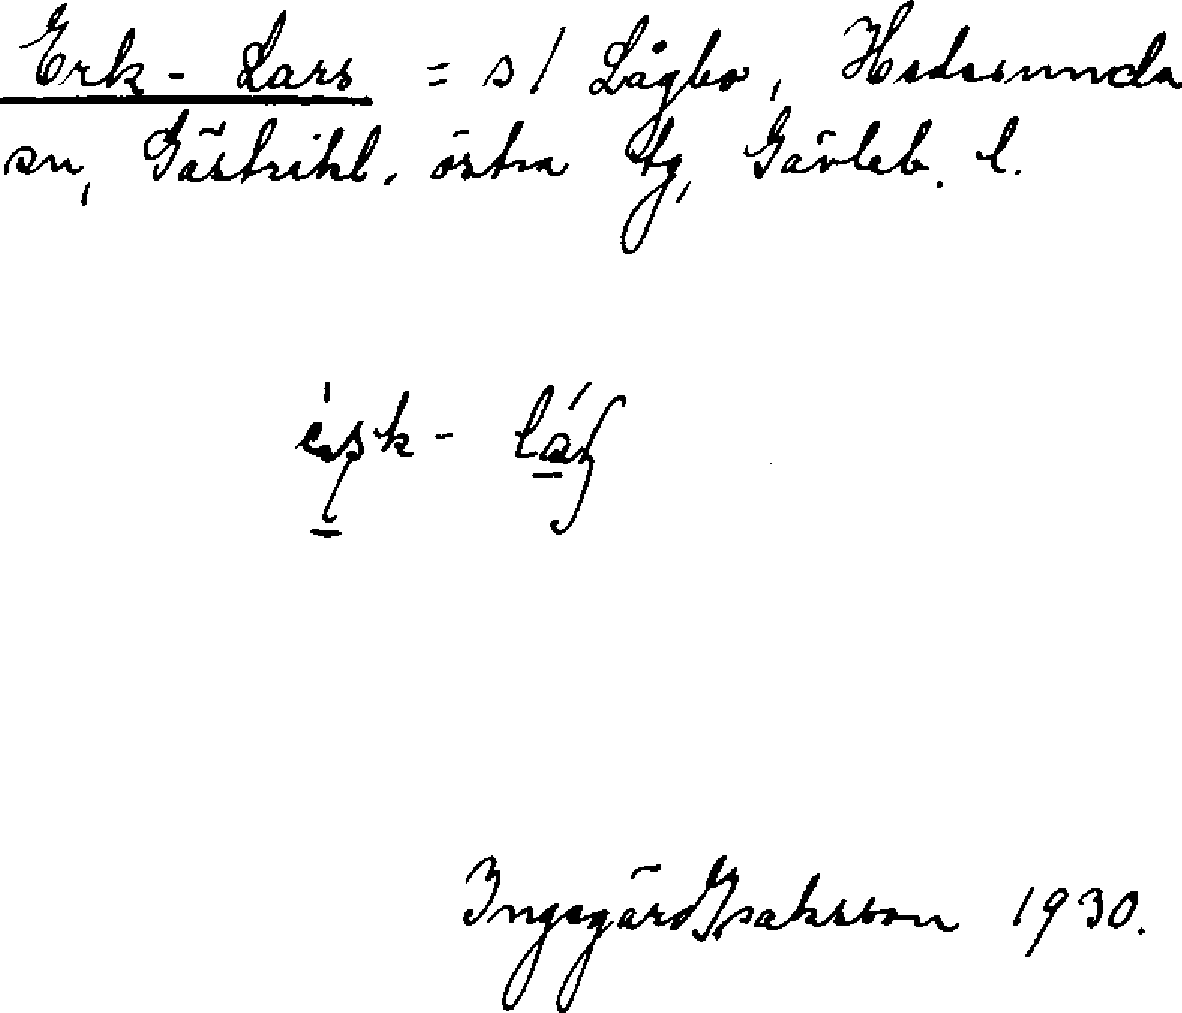 Erk-Lars = s/ Lågbo, Hedesunda
sn, Gästrikl. östra tg, Gävleb. l.
Ingegärd Isaksson 1930.